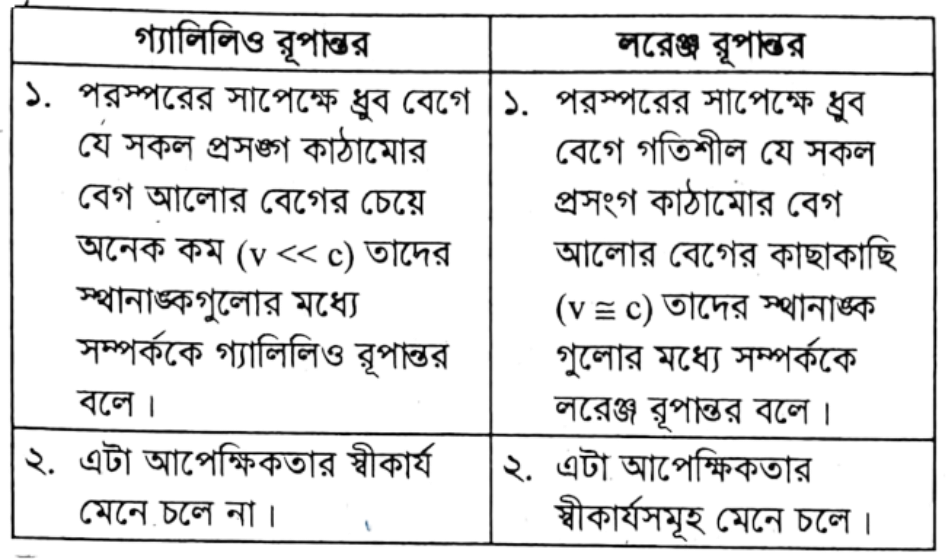 গ্যালিলিও রূপান্তর
লরেঞ্জ রূপান্তর
১. পরস্পরের সাপেক্ষে ধ্রুব বেগে
যে সকল প্রসঙ্গ কাঠামোর
বেগ আলোর বেগের চেয়ে
অনেক কম (v << c) তাদের
স্থানাঙ্কগুলোর মধ্যে
সম্পর্ককে গ্যালিলিও রূপান্তর
বলে।
১. পরস্পরের সাপেক্ষে ধ্রুব
বেগে গতিশীল যে সকল
প্রসংগ কাঠামোর বেগ
আলোর বেগের কাছাকাছি
(v ≅ c) তাদের স্থানাঙ্ক
গুলোর মধ্যে সম্পর্ককে
লরেঞ্জ রূপান্তর বলে।
২. এটা আপেক্ষিকতার স্বীকার্য
মেনে চলে না।
২. এটা আপেক্ষিকতার
স্বীকার্যসমূহ মেনে চলে।